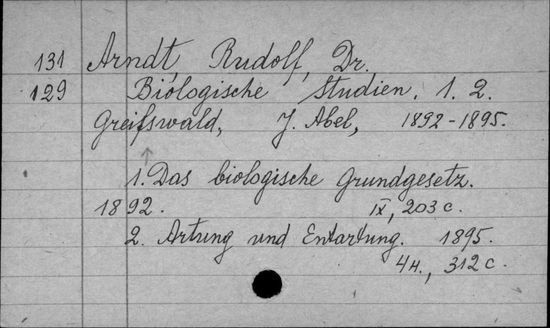 131 Arndt, Rudolf, Dr.
129 Biologische Studien. 1. 2.
Greifswald, J. Abel, 1892-1895.
1. Das biologische Grundgesetz.
1892. IX, 203 c.
2. Artung und Entartung. 1895.
4 н., 312 c.